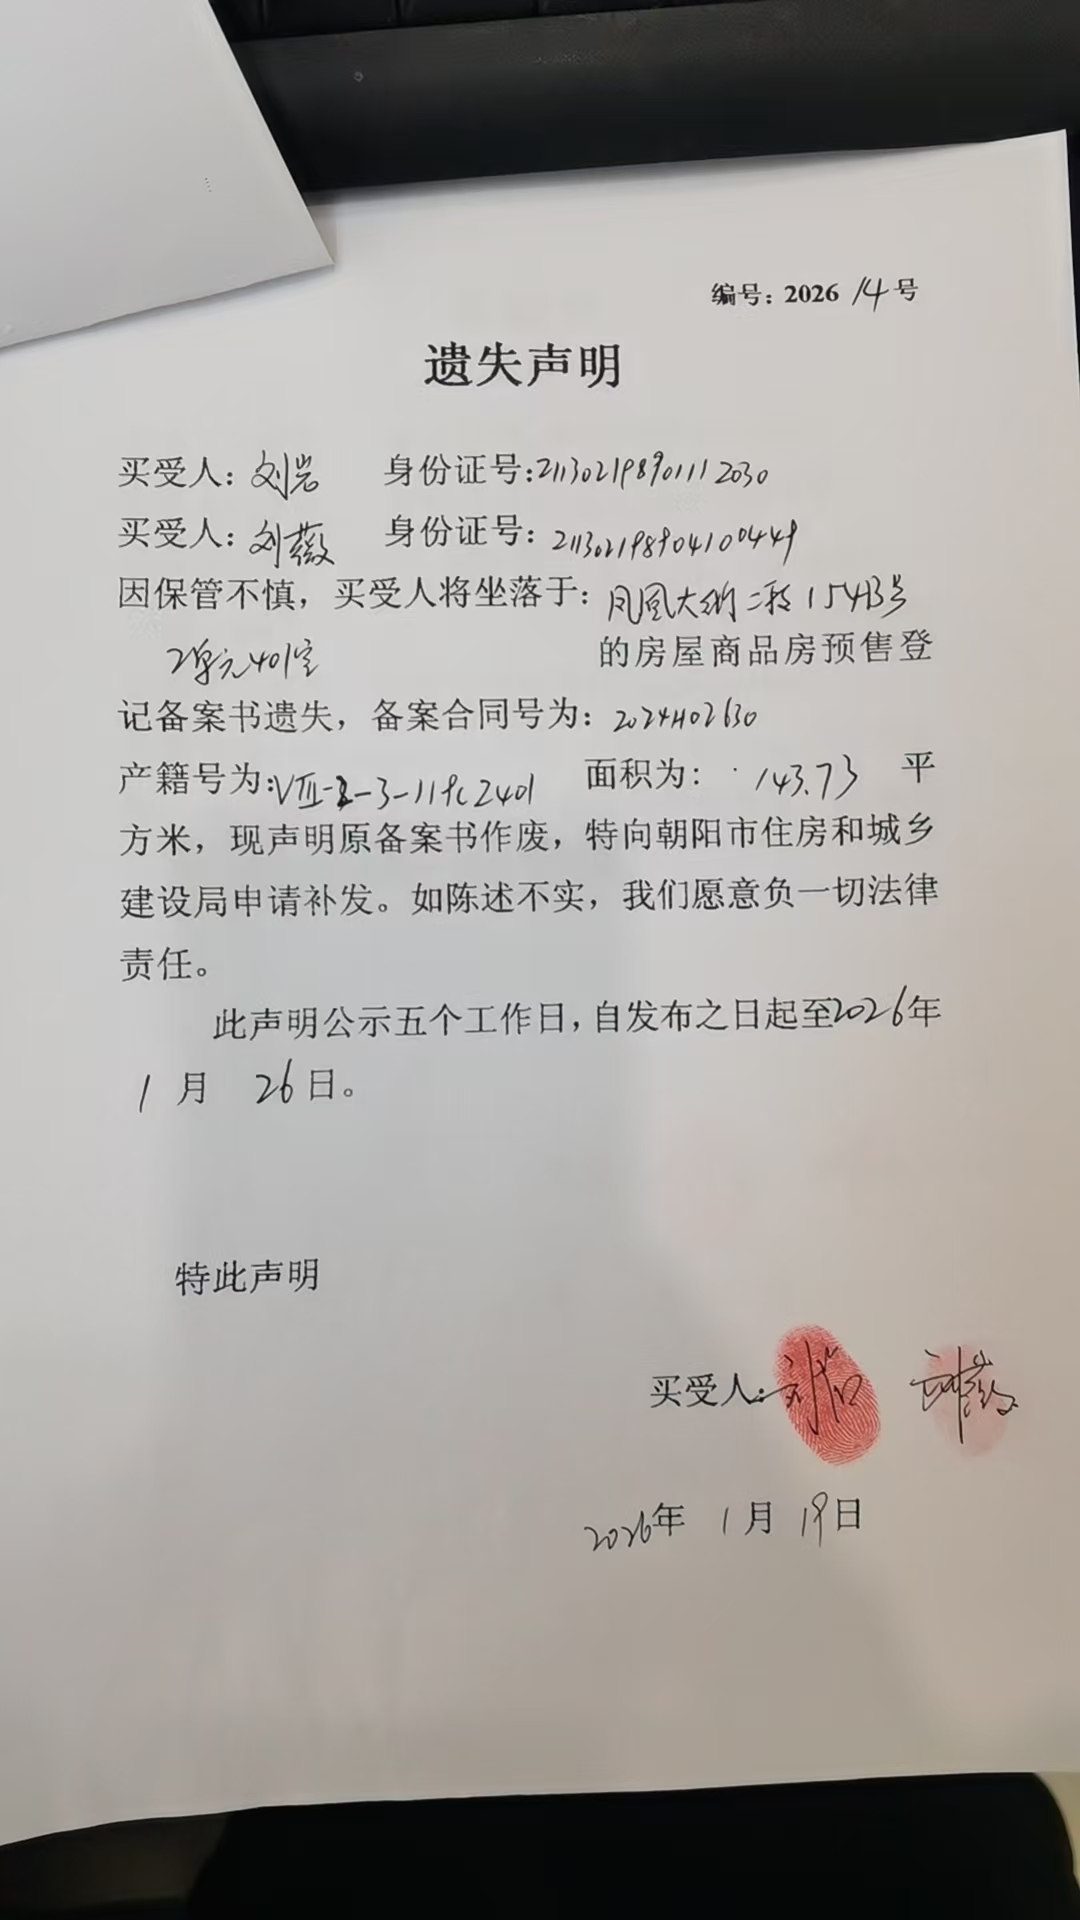 编号：2026 14号
遗失声明
买受人：刘岩 身份证号:211302198901112030
买受人：刘薇 身份证号：211302198904100449
因保管不慎，买受人将坐落于：凤凰大街二段154B号
2单元401室 的房屋商品房预售登
记备案书遗失，备案合同号为：2024H02630
产籍号为:VIII-2-3-11 2401 面积为：143.73 平
方米，现声明原备案书作废，特向朝阳市住房和城乡
建设局申请补发。如陈述不实，我们愿意负一切法律
责任。
此声明公示五个工作日，自发布之日起至2026年
1月 26日。
特此声明
买受人：刘岩 刘薇
2026年 1月 19日